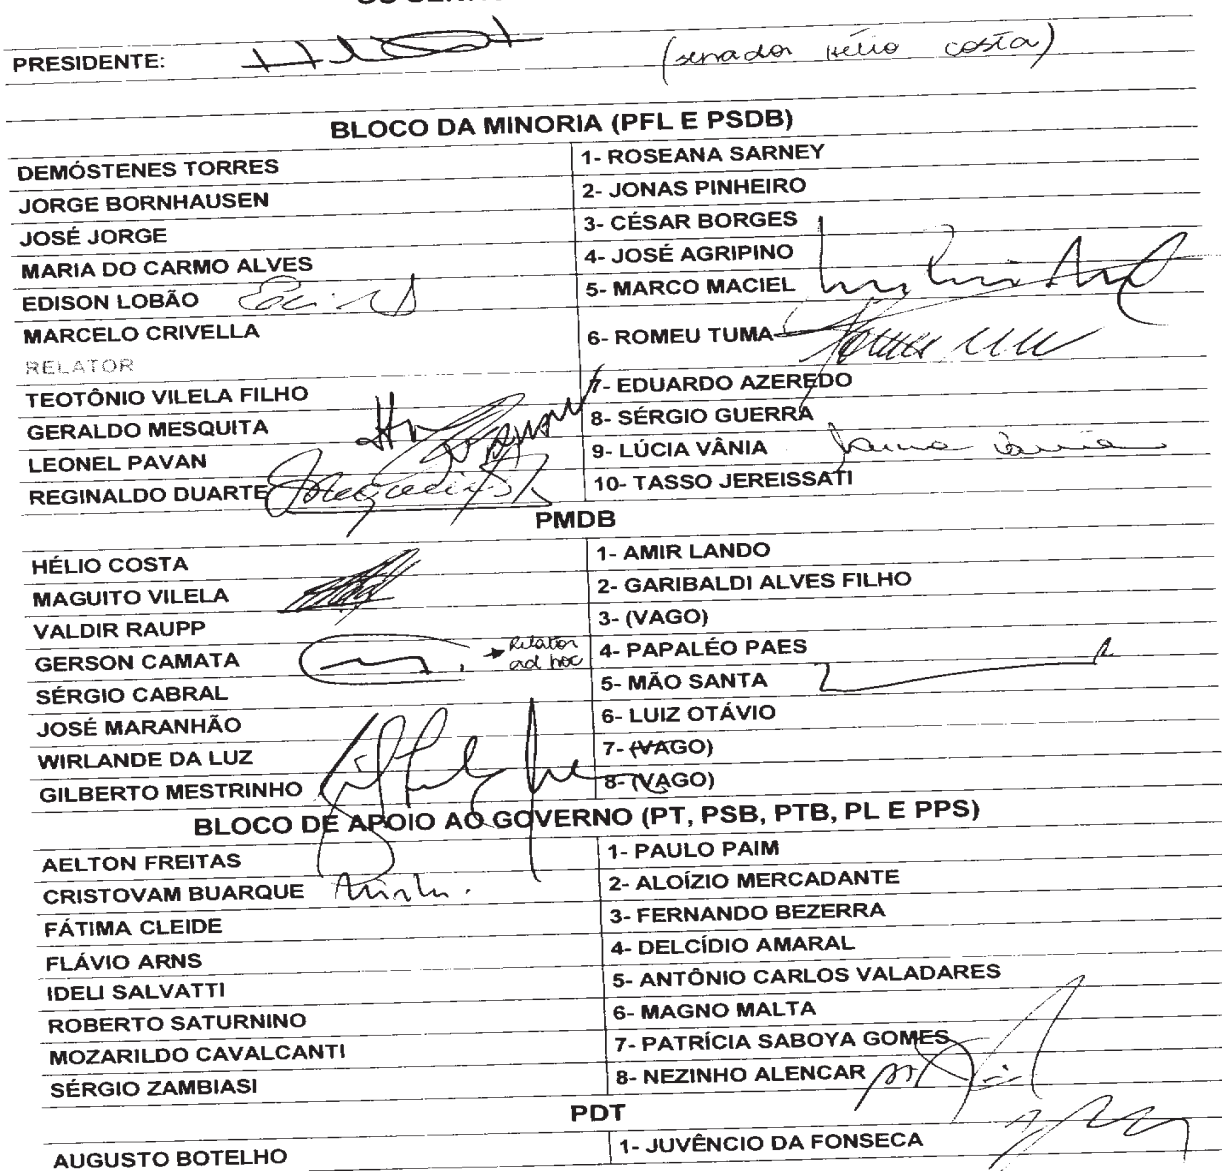 PRESIDENTE: (senador Hélio Costa)
BLOCO DA MINORIA (PFL E PSDB)
DEMÓSTENES TORRES 1- ROSEANA SARNEY
JORGE BORNHAUSEN 2- JONAS PINHEIRO
JOSÉ JORGE 3- CÉSAR BORGES
MARIA DO CARMO ALVES 4- JOSÉ AGRIPINO
EDISON LOBÃO 5- MARCO MACIEL
MARCELO CRIVELLA 6- ROMEU TUMA
RELATOR
TEOTÔNIO VILELA FILHO 7- EDUARDO AZEREDO
GERALDO MESQUITA 8- SÉRGIO GUERRA
LEONEL PAVAN 9- LÚCIA VÂNIA
REGINALDO DUARTE 10- TASSO JEREISSATI
PMDB
HÉLIO COSTA 1- AMIR LANDO
MAGUITO VILELA 2- GARIBALDI ALVES FILHO
VALDIR RAUPP 3- (VAGO)
GERSON CAMATA Relator ad hoc 4- PAPALÉO PAES
SÉRGIO CABRAL 5- MÃO SANTA
JOSÉ MARANHÃO 6- LUIZ OTÁVIO
WIRLANDE DA LUZ 7- (VAGO)
GILBERTO MESTRINHO 8- (VAGO)
BLOCO DE APOIO AO GOVERNO (PT, PSB, PTB, PL E PPS)
AELTON FREITAS 1- PAULO PAIM
CRISTOVAM BUARQUE 2- ALOÍZIO MERCADANTE
FÁTIMA CLEIDE 3- FERNANDO BEZERRA
FLÁVIO ARNS 4- DELCÍDIO AMARAL
IDELI SALVATTI 5- ANTÔNIO CARLOS VALADARES
ROBERTO SATURNINO 6- MAGNO MALTA
MOZARILDO CAVALCANTI 7- PATRÍCIA SABOYA GOMES
SÉRGIO ZAMBIASI 8- NEZINHO ALENCAR
PDT
AUGUSTO BOTELHO 1- JUVÊNCIO DA FONSECA